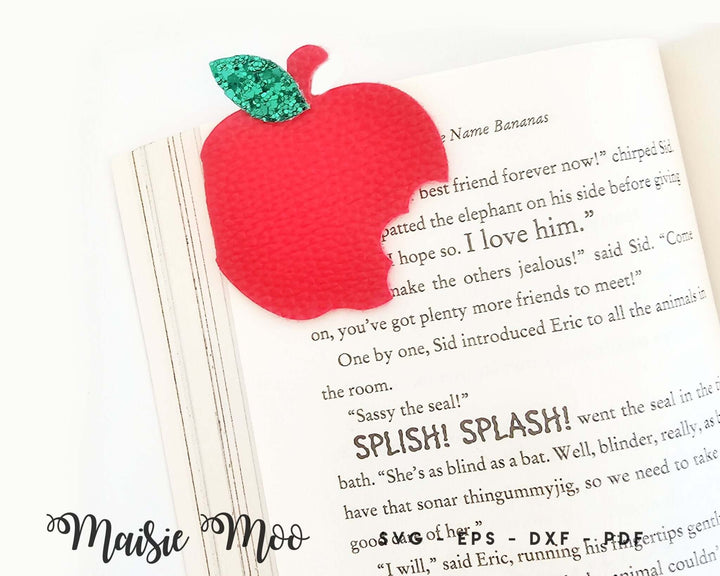 e Name Bananas
best friend forever now!” chirped Sid.
patted the elephant on his side before giving
I hope so. I love him.”
make the others jealous!” said Sid. “Come
on, you’ve got plenty more friends to meet!”
One by one, Sid introduced Eric to all the animals in
the room.
“Sassy the seal!”
SPLISH! SPLASH! went the seal in the
bath. “She’s as blind as a bat. Well, blinder, really, as
have that sonar thingummyjig, so we need to take
good care of her.”
“I will,” said Eric, running his fingertips gently
animal couldn’t
Maisie Moo
SVG - EPS - DXF - PDF